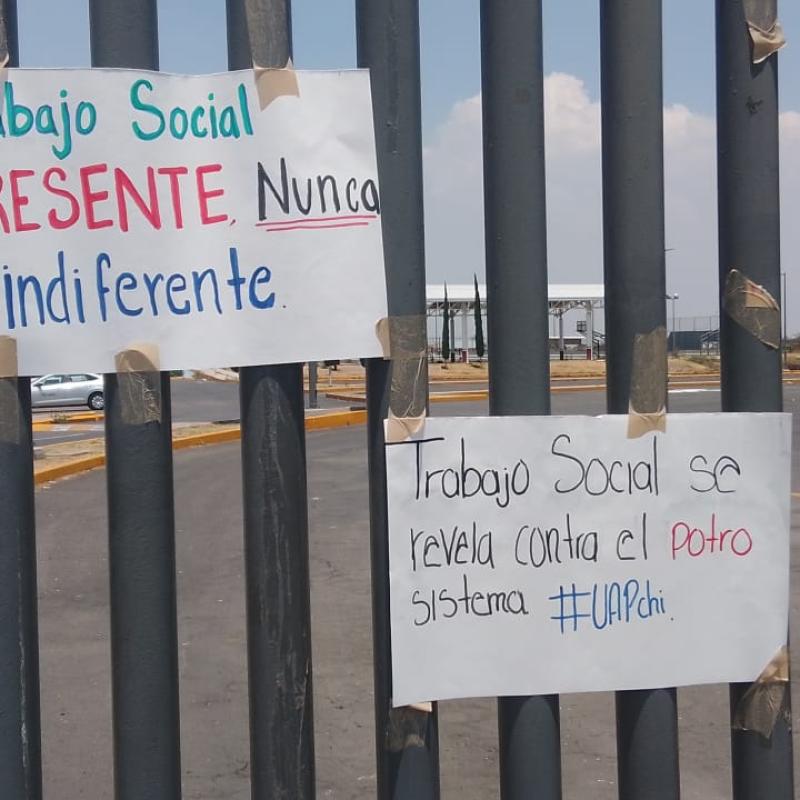 abajo Social
RESENTE, Nunca
indiferente.
Trabajo Social se
revela contra el potro
sistema #UAPchi.